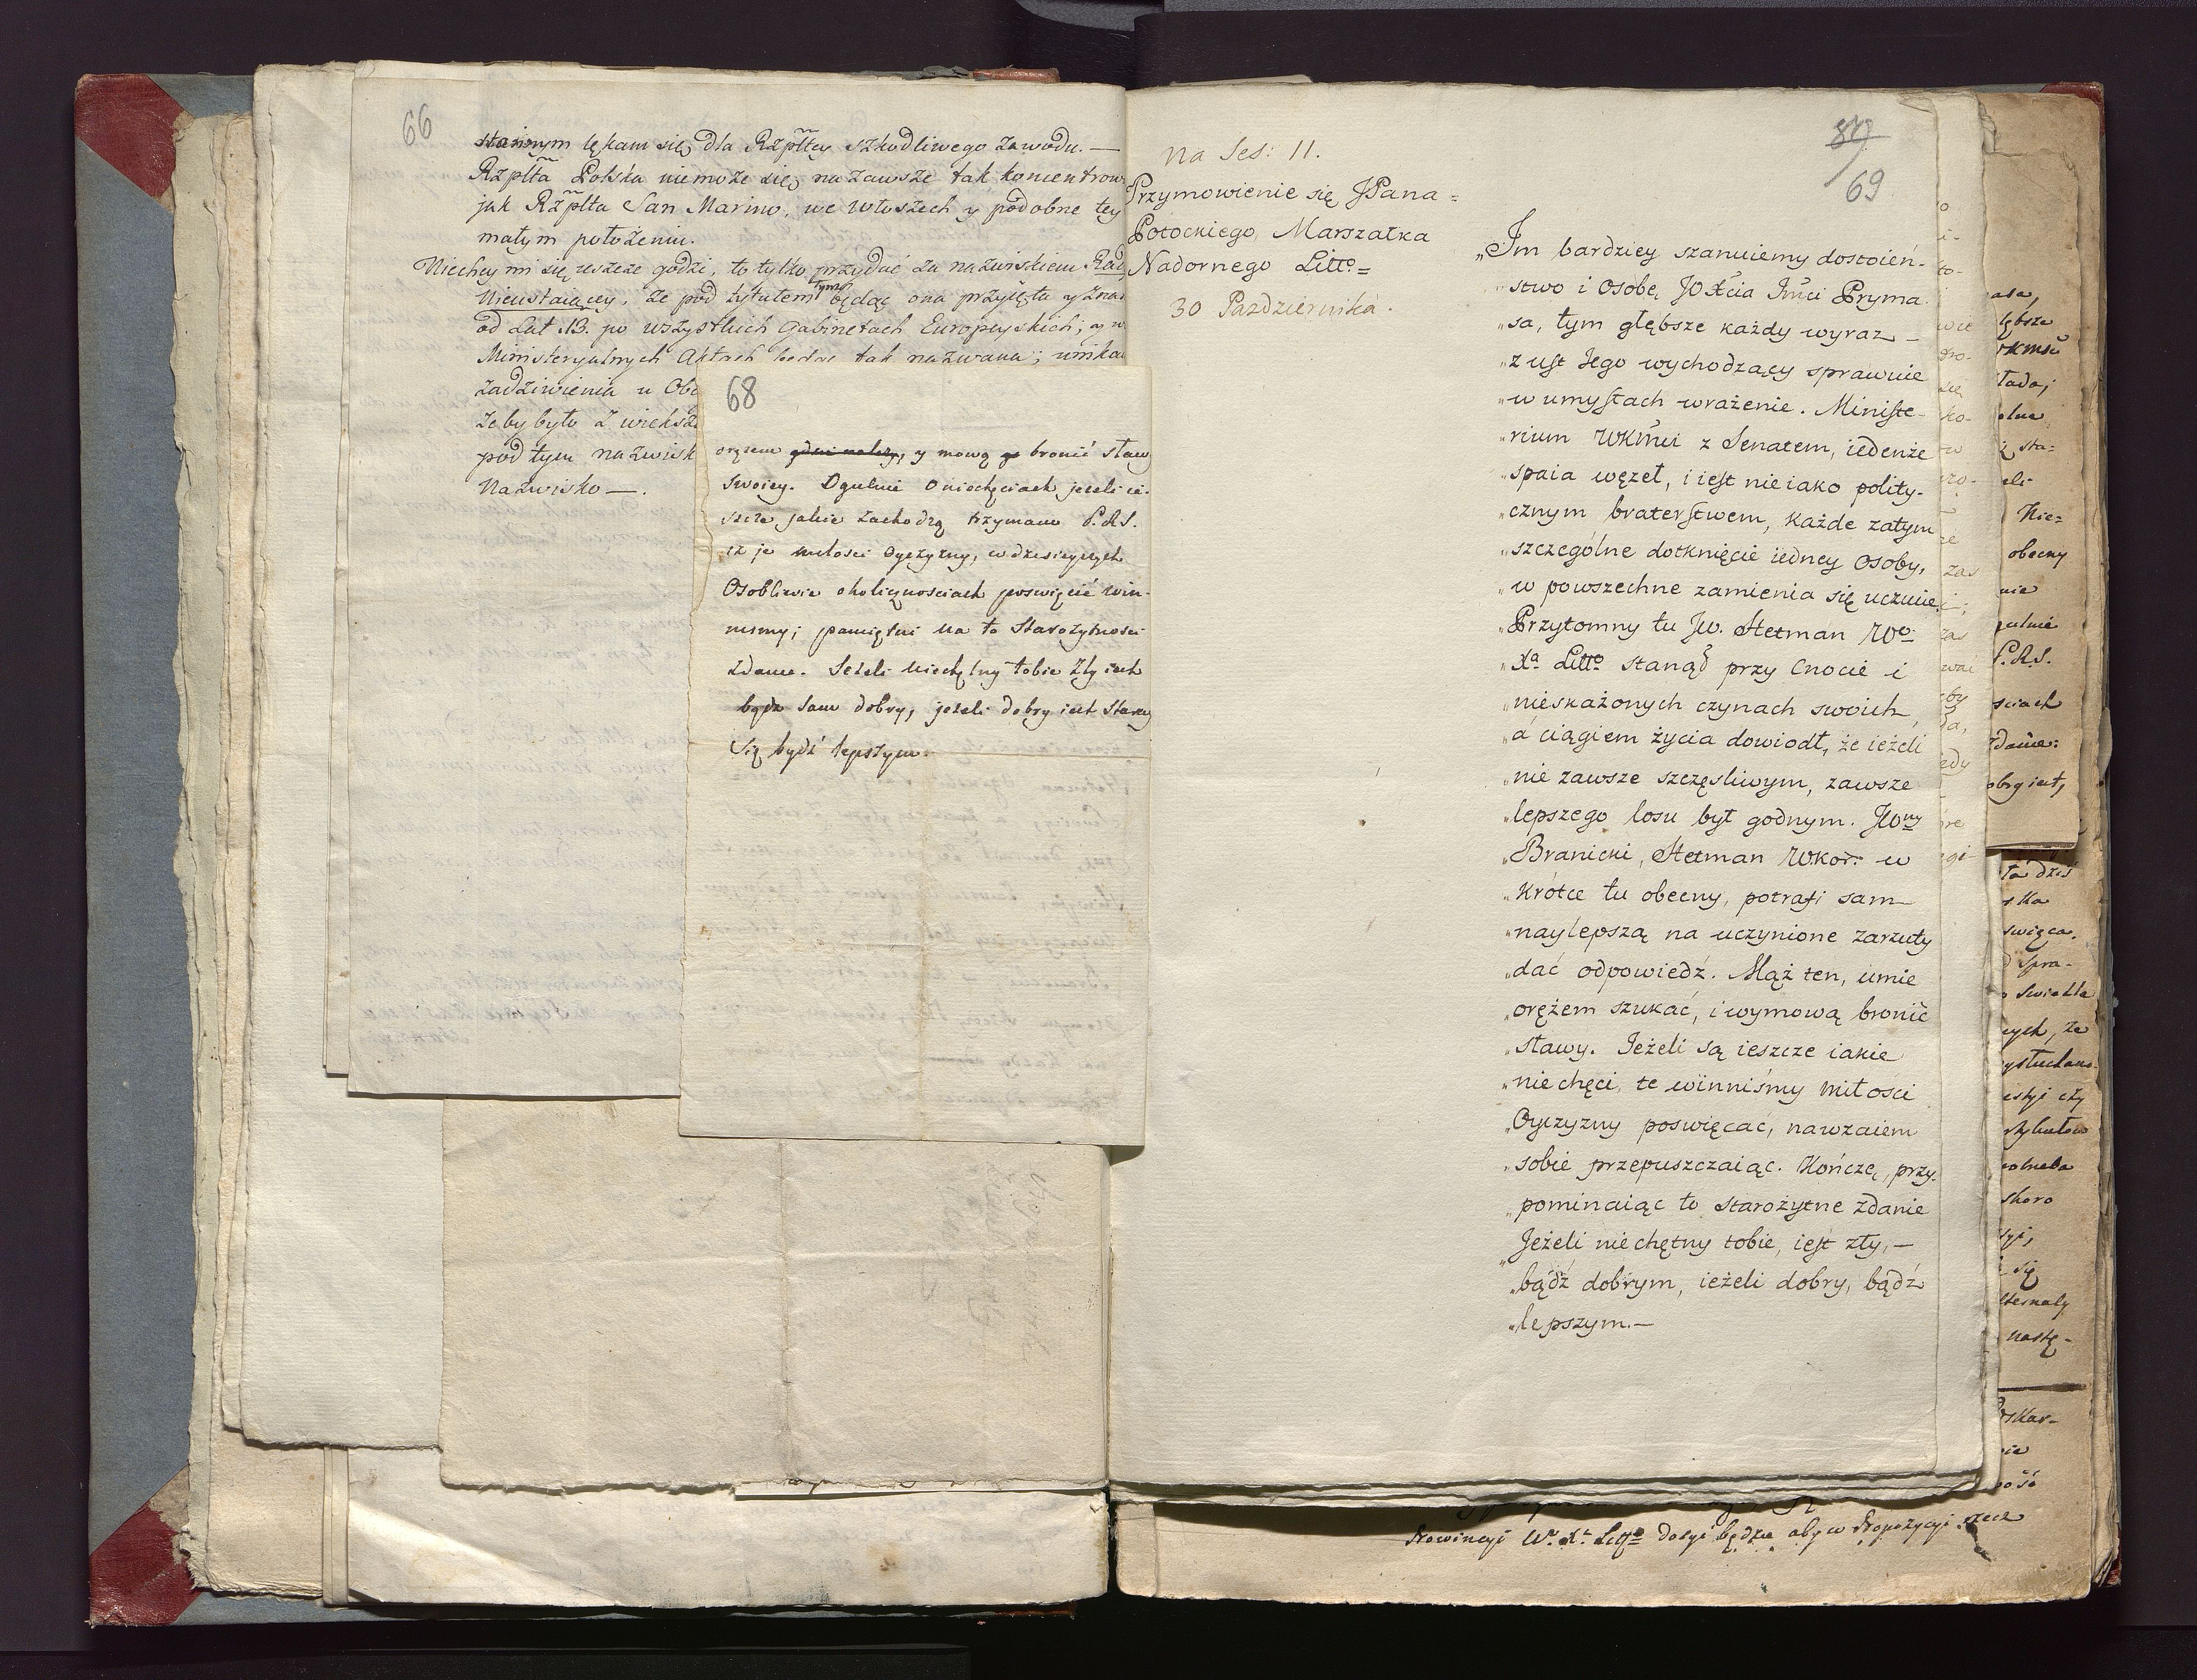 66
stannym lękam się dla Rzpltey szkodliwego zawodu. —
Rzplta Polska niemoże się na zawsze tak koncentrow
jak Rzplta San Marino, we Włoszech y podobne tey
małym położeniu.
Niechcy mi się jeszcze godzi, to tylko przydać za nazwiskiem Rad
Nieustaiącey, że pod tytułem tym będąc ona przyięta y znan
od Lat 13. po wszystkich Gabinetach Europeyskich; y w
Ministeryalnych Aktach będąc tak nazwana; unika
zadziwienia u Obc
żeby było z większ
pod tym nazwisk
Nazwisko —.
68
orężem gdzie należy, y mową go bronić sław
swoiey. Ogulnie o niechęciach jeżeli ie-
szcze jakie zachodzą trzymam P.R.S.
iż je miłości Oyczyzny, w dzisieyszych
Osobliwie okolicznościach poswięcić win-
nismy; pamiętni na to Starożytnosci
zdanie. Jeżeli niechętny tobie zły iest
bądz sam dobry, jeżeli dobry iest staray
się bydź lepszym.
na Ses: 11.
Przymowienie się JPana=
Potockiego, Marszałka
Nadornego Litto=
30 Pazdziernika.
87
69
„Im bardziey szanuiemy dostoień-
„stwo i osobę JOXcia Jmći Pryma
„sa, tym głębsze każdy wyraz –
„z ust Jego wychodzący sprawuie
„w umysłach wrażenie. Ministe-
„rium WKMci z Senatem, iedenże
„spaia węzeł, i iest nieiako polity-
„cznym braterstwem, każde zatym
„szczególne dotknięcie iedney osoby,
„w powszechne zamienia się uczucie.
„Przytomny tu Jw. Hetman Wo
„Xa Litto stanął przy cnocie i
„nieskażonych czynach swoich,
„a ciągiem życia dowiodł, że ieżeli
„nie zawsze szczęśliwym, zawsze
„lepszego losu był godnym. JWny
„Branicki, Hetman WKor: w
„krótce tu obecny, potrafi sam
„naylepszą na uczynione zarzuty
„dać odpowiedź. Mąż ten, umie
„orężem szukać, i wymową bronić
„sławy. Jeżeli są ieszcze iakie
„niechęci, te winniśmy miłości
„Oyczyzny poswięcać, nawzaiem
„sobie przepuszczaiąc. Kończę, przy-
„pominaiąc to starożytne zdanie
„Jeżeli niechętny tobie, iest zły, —
„bądź dobrym, ieżeli dobry, bądź
„lepszym.—
Prowincyi W. X. Litto dosyć będzie aby w Propozycyi rzecz